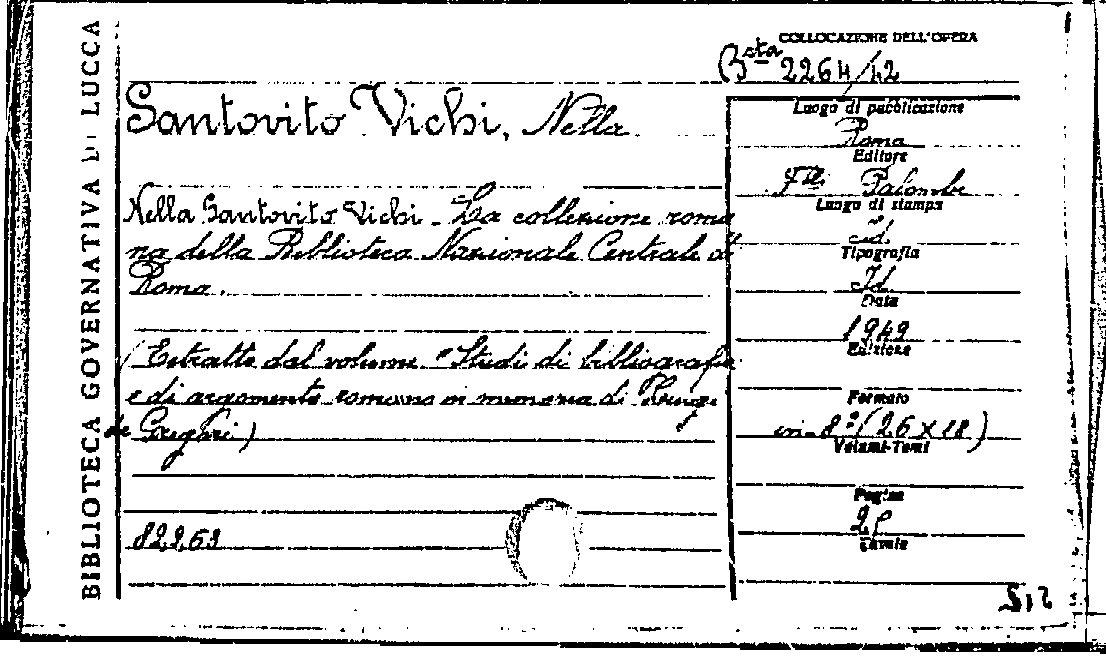 BIBLIOTECA GOVERNATIVA DI LUCCA
COLLOCAZIONE DELL'OPERA
Bsta 2264/12
Santovito Vichi, Nella
Nella Santovito Vichi - La collezione roma
na della Biblioteca Nazionale Centrale di
Roma.
(Estratto dal volume "Studi di bibliografia
e di argomento romano in memoria di Luigi
de Gregori)
82.963
Luogo di pubblicazione
Roma
Editore
F.lli Palombi
Luogo di stampa
id.
Tipografia
Id
Data
1949
Edizione
Formato
in-8º (26 x 18)
Volumi-Tomi
Pagine
Tavole
512